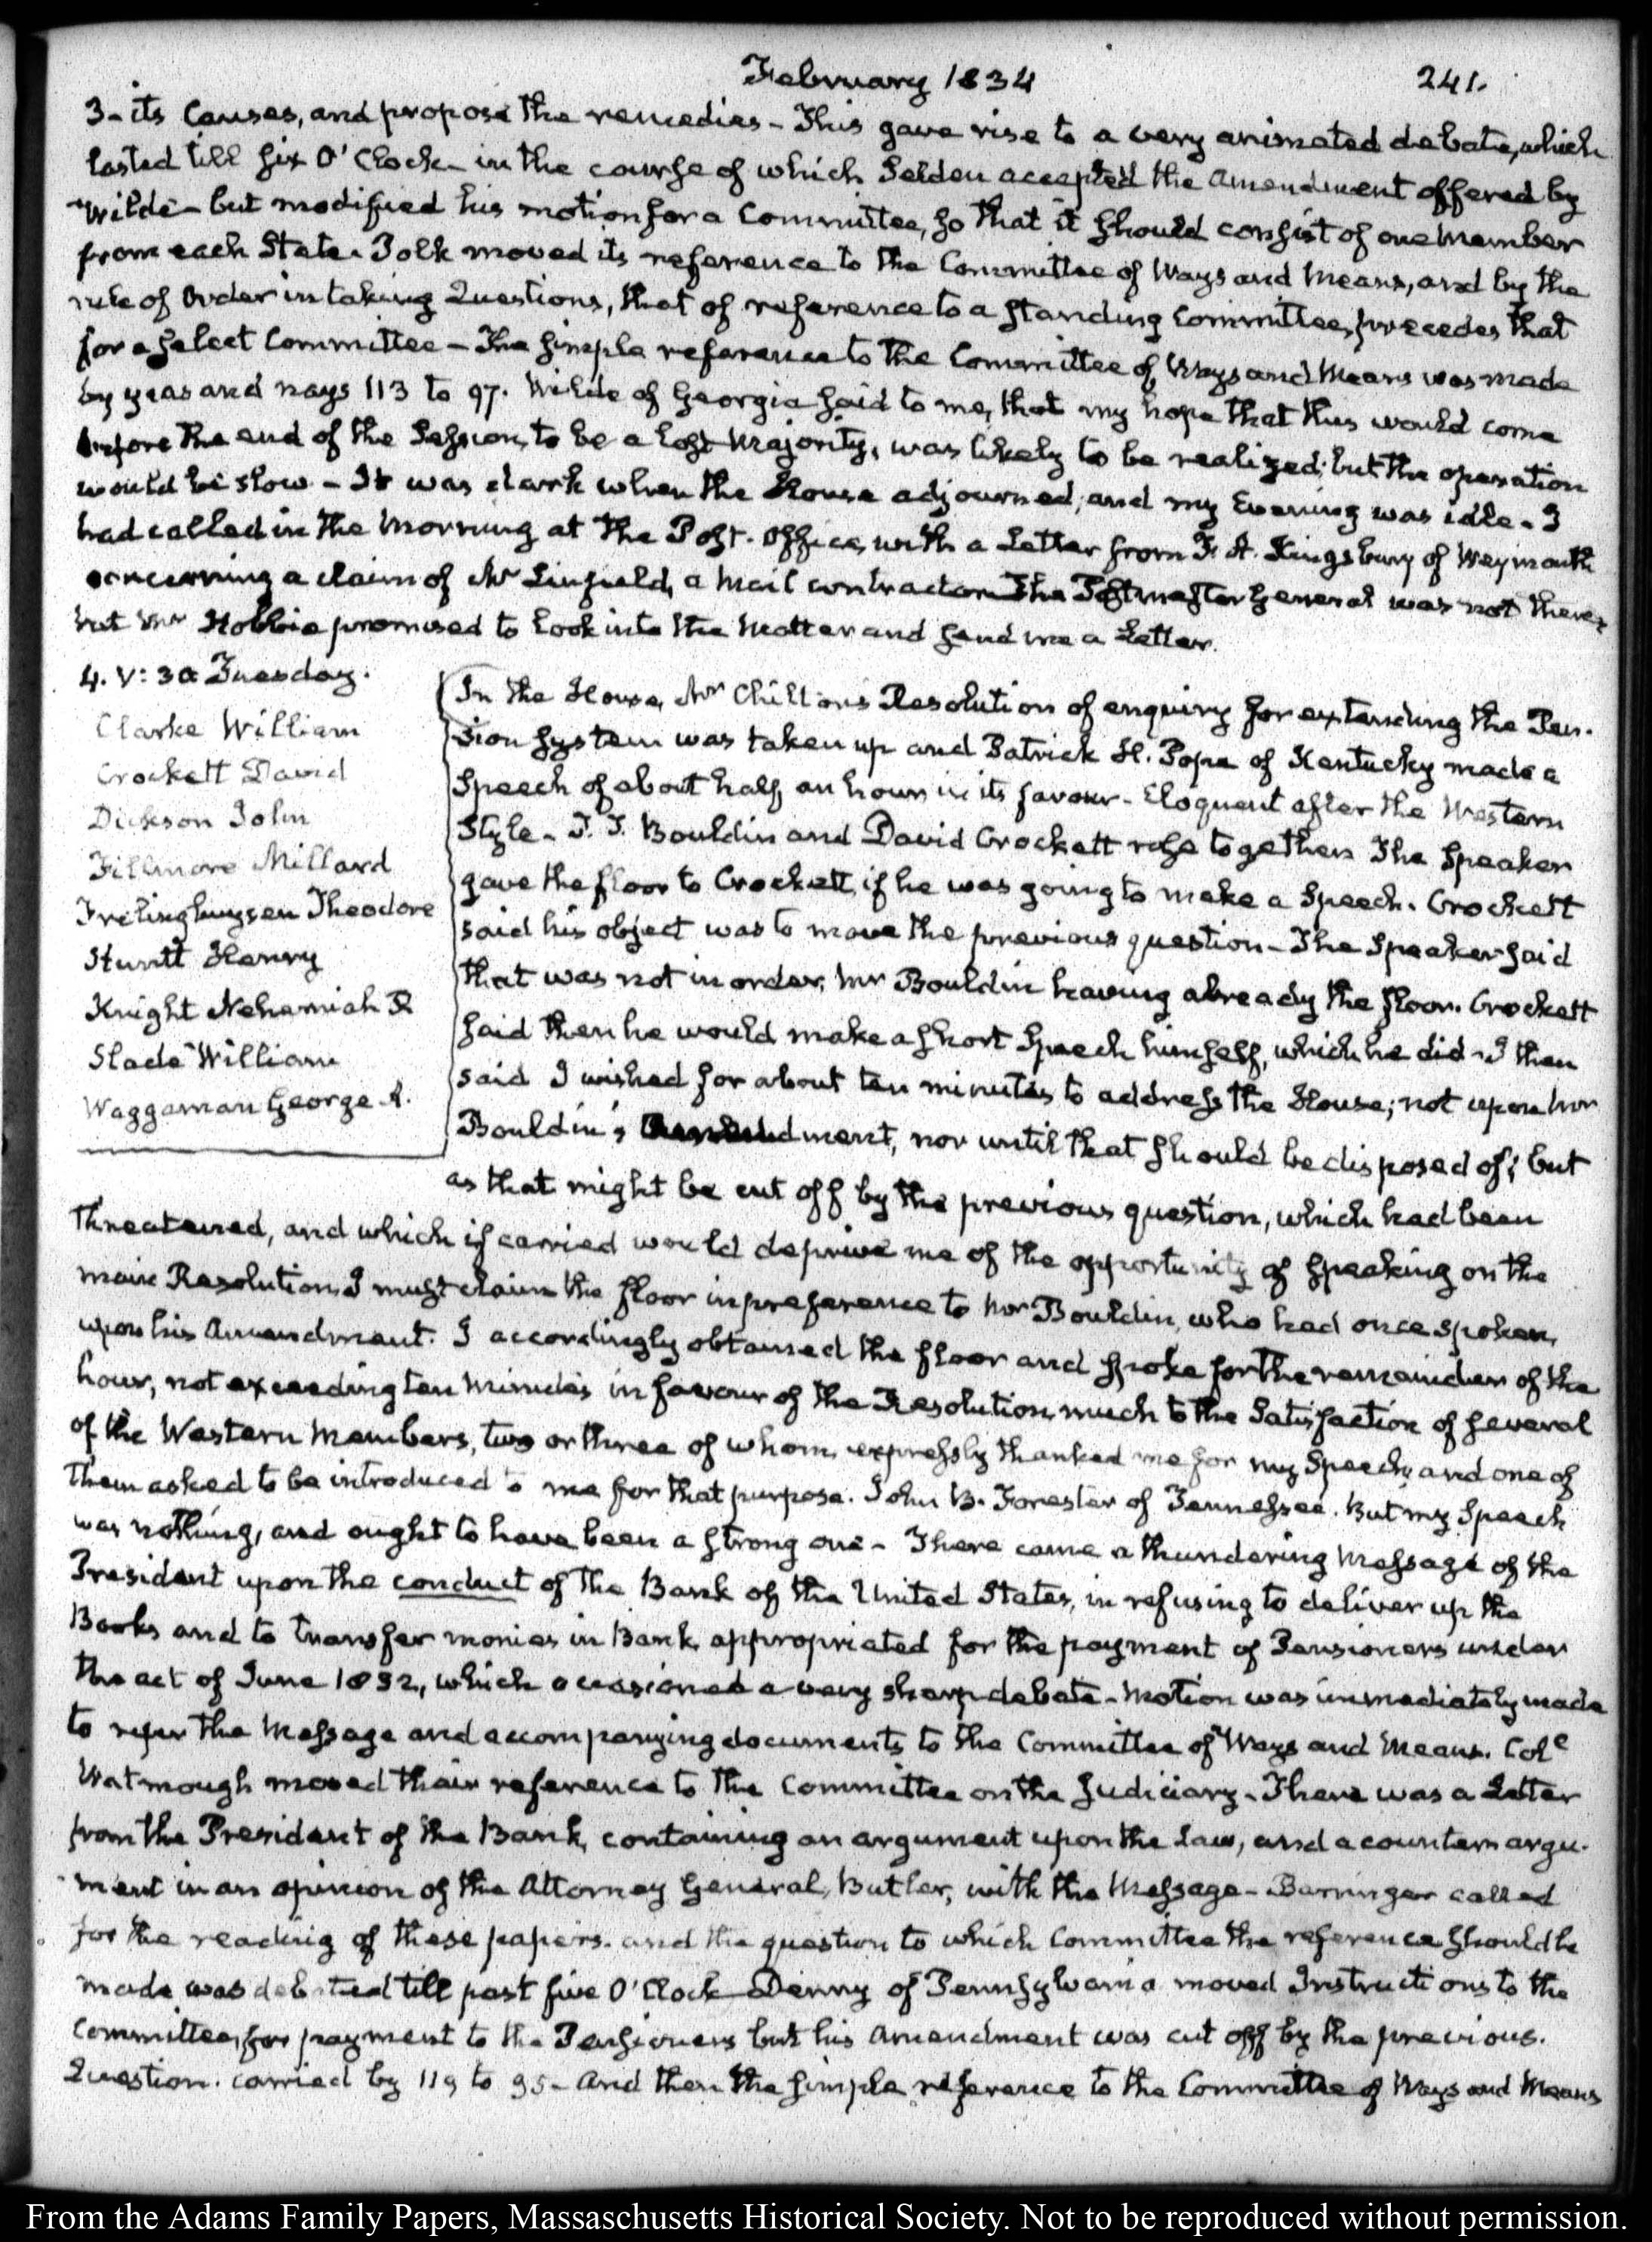 February 1834
241.
3- its Causes, and propose the remedies - This gave rise to a very animated debate, which
lasted till six O'Clock - in the course of which Selden accepted the Amendment offered by
Wilde - but modified his motion for a Committee, so that it should consist of one Member
from each State. Polk moved its reference to the Committee of Ways and Means, and by the
rule of Order in taking Questions, that of reference to a standing Committee, precedes that
for a select Committee - The simple reference to the Committee of Ways and Means was made
by yeas and nays 113 to 97. Wilde of Georgia said to me, that my hope that this would come
before the end of the Session, to be a lost Majority, was likely to be realized; but the operation
would be slow - It was dark when the House adjourned; and my Evening was idle. I
had called in the Morning at the Post-Office, with a Letter from F. A. Kingsbury of Weymouth
concerning a claim of Mr Linfield, a Mail contractor. The Postmaster General was not there,
but Mr Hobbie promised to look into the Matter and send me a Letter.
4. V: 30 Tuesday.
Clarke William
Crockett David
Dickson John
Fillmore Millard
Frelinghuysen Theodore
Huntt Henry
Knight Nehemiah R
Slade William
Waggaman George A.
In the House, Mr Chilton's Resolution of enquiry for extending the Pen-
sion system was taken up and Patrick H. Pope of Kentucky made a
Speech of about half an hour in its favour - Eloquent after the Western
Style - T. T. Bouldin and David Crockett rose together. The Speaker
gave the floor to Crockett, if he was going to make a Speech. Crockett
said his object was to move the previous question - The Speaker said
that was not in order, Mr Bouldin having already the floor. Crockett
said then he would make a short Speech himself, which he did - I then
said I wished for about ten minutes to address the House; not upon Mr
Bouldin's Amendment, nor until that should be disposed of; but
as that might be cut off by the previous question, which had been
threatened, and which if carried would deprive me of the opportunity of speaking on the
main Resolution, I must claim the floor in preference to Mr Bouldin, who had once spoken,
upon his Amendment. I accordingly obtained the floor and spoke for the remainder of the
hour, not exceeding ten Minutes in favour of the Resolution, much to the Satisfaction of several
of the Western Members, two or three of whom expressly thanked me for my Speech, and one of
them asked to be introduced to me for that purpose. John B. Forester of Tennessee. But my Speech
was nothing, and ought to have been a strong one - There came a thundering Message of the
President upon the conduct of the Bank of the United States, in refusing to deliver up the
Books and to transfer monies in Bank, appropriated for the payment of Pensioners under
the act of June 1832, which occasioned a very sharp debate - Motion was immediately made
to refer the Message and accompanying documents to the Committee of Ways and Means. Col
Watmough moved their reference to the Committee on the Judiciary - There was a Letter
from the President of the Bank, containing an argument upon the law, and a counter argu-
ment in an opinion of the Attorney General, Butler, with the Message - Barringer called
for the reading of these papers. and the question to which Committee the reference should be
made was debated till past five O'Clock - Denny of Pennsylvania moved Instructions to the
Committee, for payment to the Pensioners but his Amendment was cut off by the previous.
Question. carried by 119 to 95 - And then the simple reference to the Committee of Ways and Means
From the Adams Family Papers, Massachusetts Historical Society. Not to be reproduced without permission.